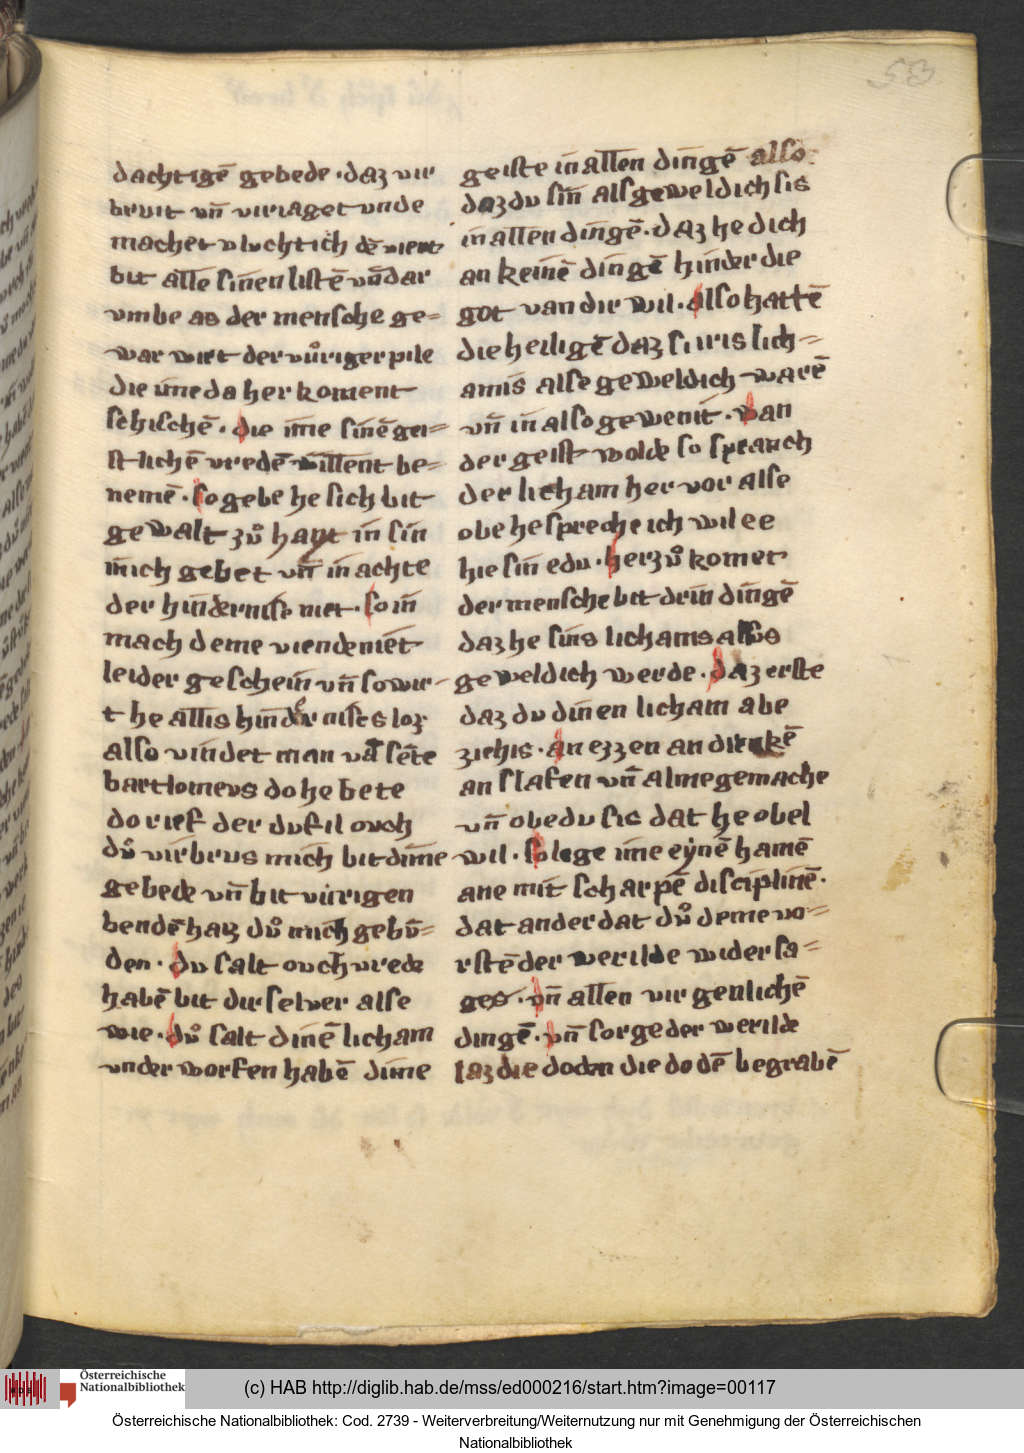 53
dachtigē gebede · daz vir
bruit vn̄ viriaget vnde
machet vluchtich dē vient
bit allē sinen listē vn̄ dar
vmbe as der mensche ge=
war wirt der vůriger pile
die ūme da her koment
schischē · die īme sinē gei=
stlichē vredē willent be=
nemē · so gebe he sich bit
gewalt zů hant in sin
īnich gebet vn̄ in achte
der hindernisse niet · so in
mach deme viende niet
leider geschein vn̄ so wir-
t he allis hindernises loz
also vindet man vā sēte
bartlomeus do he bete
do rief der dufil ouch
dů virbrus mich bit dime
gebede vn̄ bit vůrigen
bendē haz dů mich gebū=
den · du salt ouch vrede
habē bit dir selver alse
wie · dů salt dinē licham
vnder worfen habē dime
geiste in allen dingē also
daz du sin als geweldich sis
in allen dingē · daz he dich
an keinē dingē hinder die
got van dir wil · also hattē
die heiligē daz si iris lich=
amis alse geweldich warē
vn̄ in also gewenit · van
der geist wolde so sprauch
der licham her vor alse
obe he spreche ich wil ee
hie sin e du · her zů komet
der mensche bit drin dingē
daz he sins lichams alsus
geweldich werde · daz erste
daz du dinen licham abe
ziehis · an ezzen an drinkē
an slafen vn̄ alme gemache
vn̄ obe du sis dat he obel
wil · so lege ime eynē hamē
ane mit scharpē disciplinē ·
dat ander dat dů deme vo=
rstē der werilde wider sa=
ges · vn̄ allen virgenlichē
dingē · vn̄ sorge der werilde
laz die doden die dodē begrabē
Österreichische
Nationalbibliothek
(c) HAB http://diglib.hab.de/mss/ed000216/start.htm?image=00117
Österreichische Nationalbibliothek: Cod. 2739 - Weiterverbreitung/Weiternutzung nur mit Genehmigung der Österreichischen
Nationalbibliothek